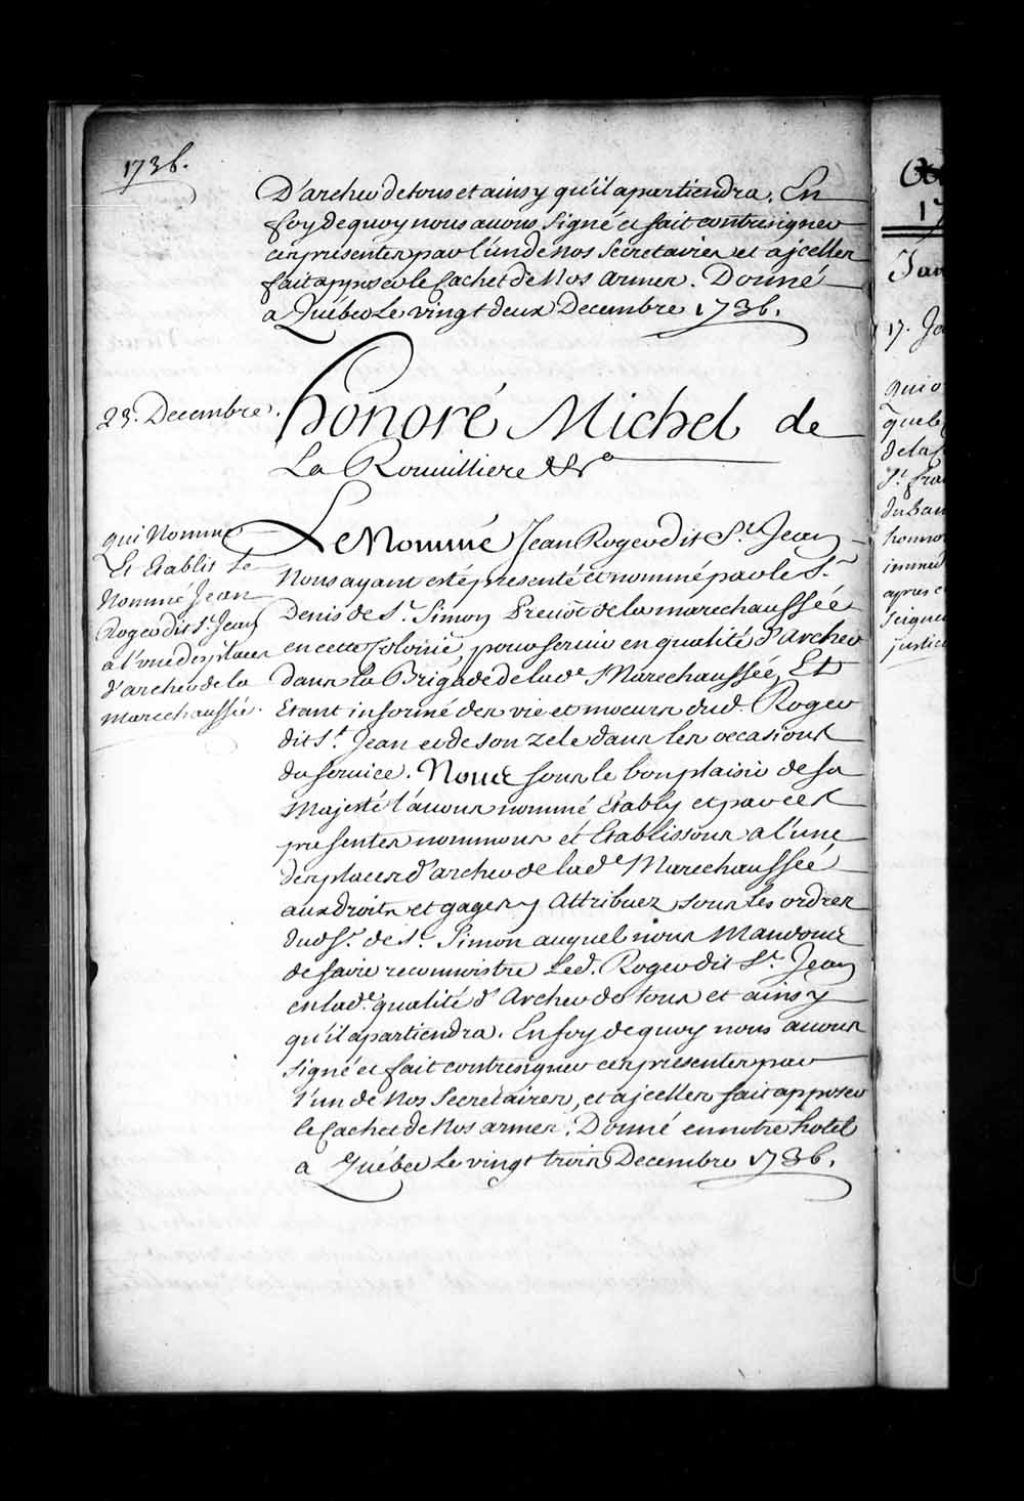 1736.
D'archer de tous et ainsy qu'il apartiendra. En
foy de quoy nous avons signé et fait contresigner
ces presentes par l'un de nos Secretaires et a jcelles
fait apposer le Cachet de Nos armes. Donné
a Québec le vingt deux Decembre 1736.
23. Decembre.
honoré Michel de
La Rouuilliere &ra
qui Nomme
Et Etablit Le
Nommé Jean
Roger dit St. Jean
a l'une des places
d'archer de la
Marechaussée.
Le Nommé Jean Roger dit St. Jean
Nous ayant esté presenté et nommé par le Sr.
Denis de St. Simon Prevôt de la marechaussée
en cette Colonie, pour servir en qualité d'Archer
dans la Brigade de lad.e Marechaussée, Et
Etant informé des vie et moeurs dud. Roger
dit St. Jean et de son zele dans les occasions
du service. Nous sous le bon plaisir de sa
Majesté l'avons nommé Etably et par ces
presentes nommons et Etablissons a l'une
des places d'archer de lad.e Marechaussée
aux droits et gages y Attribuez sous les ordres
dud. Sr. de St. Simon auquel nous Mandons
de faire reconnoistre Led. Roger dit St. Jean
en lad.e qualité d'Archer de tous et ainsy
qu'il apartiendra. En foy de quoy nous avons
signé et fait contresigner ces presentes par
l'un de Nos Secretaires, et a jcelles fait apposer
le Cachet de Nos armes. Donné en notre hotel
a Québec Le vingt trois Decembre 1736.
17. Ja
qui o
de la
St. fra
du ban
immed
apres
seigneu
justice